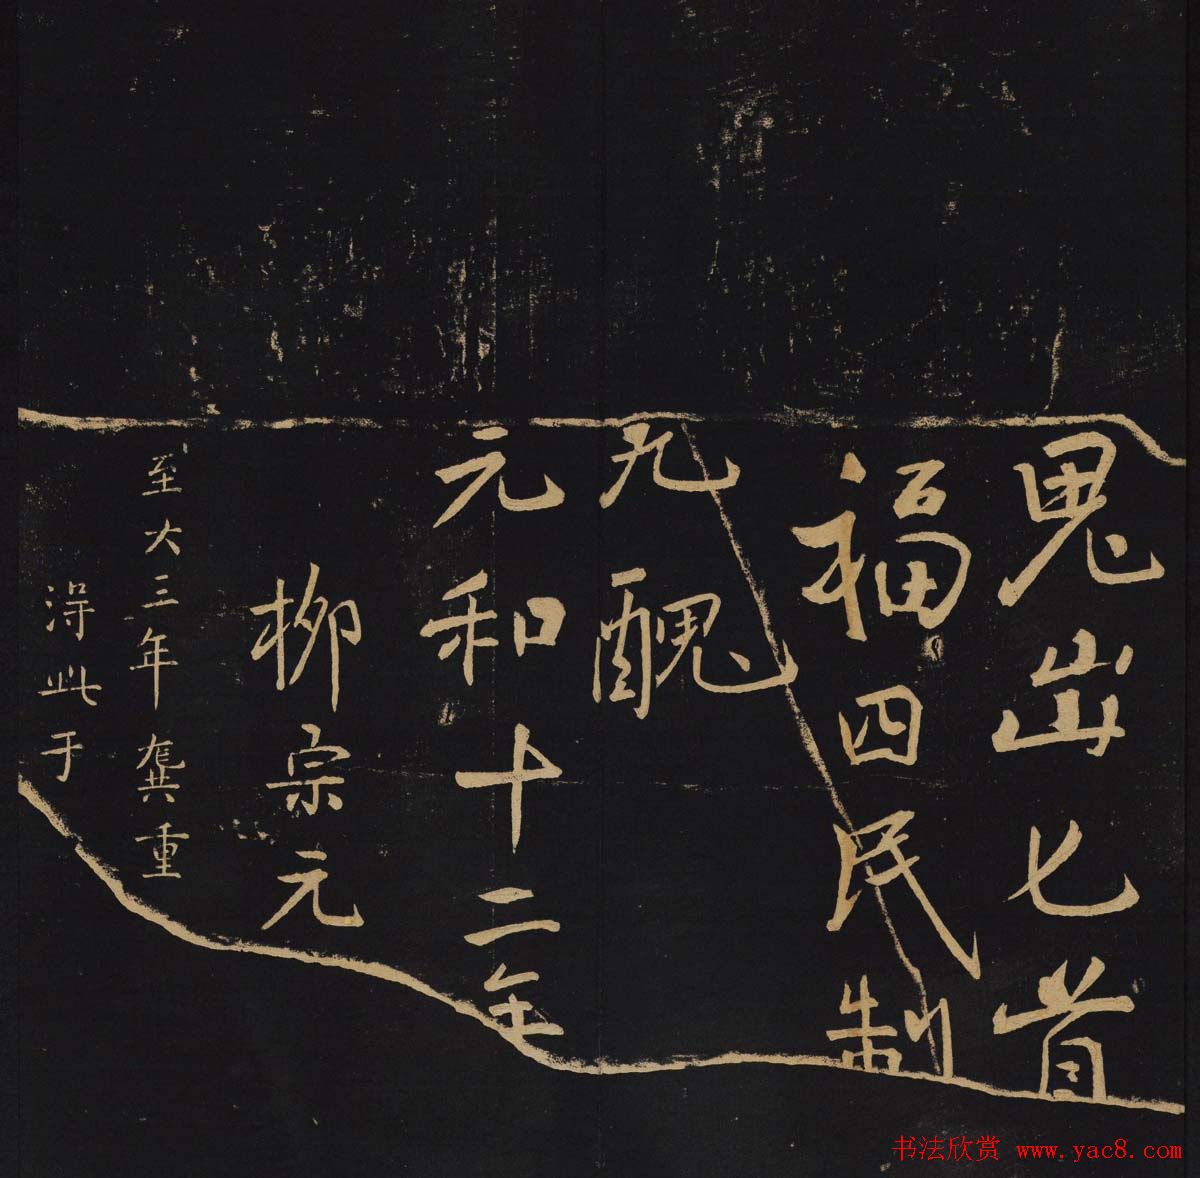 鬼出匕首
福四民制
九醜
元和十二年
柳宗元
至大三年龔重
得此于
书法欣赏 www.yac8.com